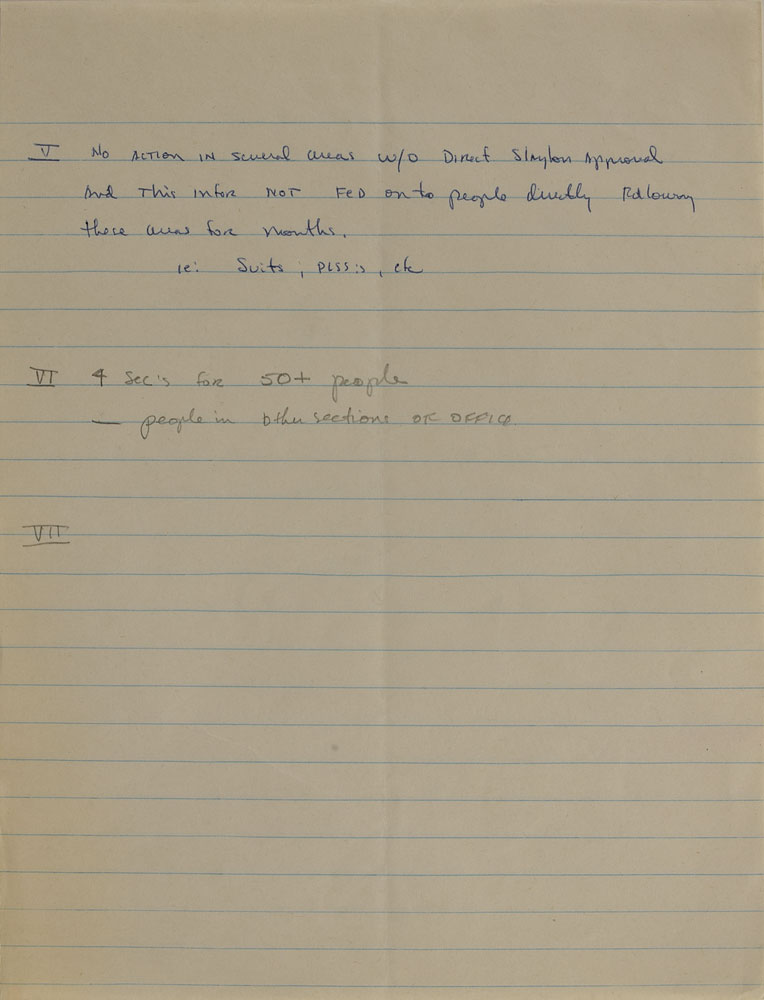 V No ACTION IN several areas w/o Direct Slayton Approval
And This infor NOT FED on to people directly Following
these areas for months.
ie: Suits, PLSS's, etc
VI 4 Sec's for 50+ people
— people in other sections OR OFFICE.
VII